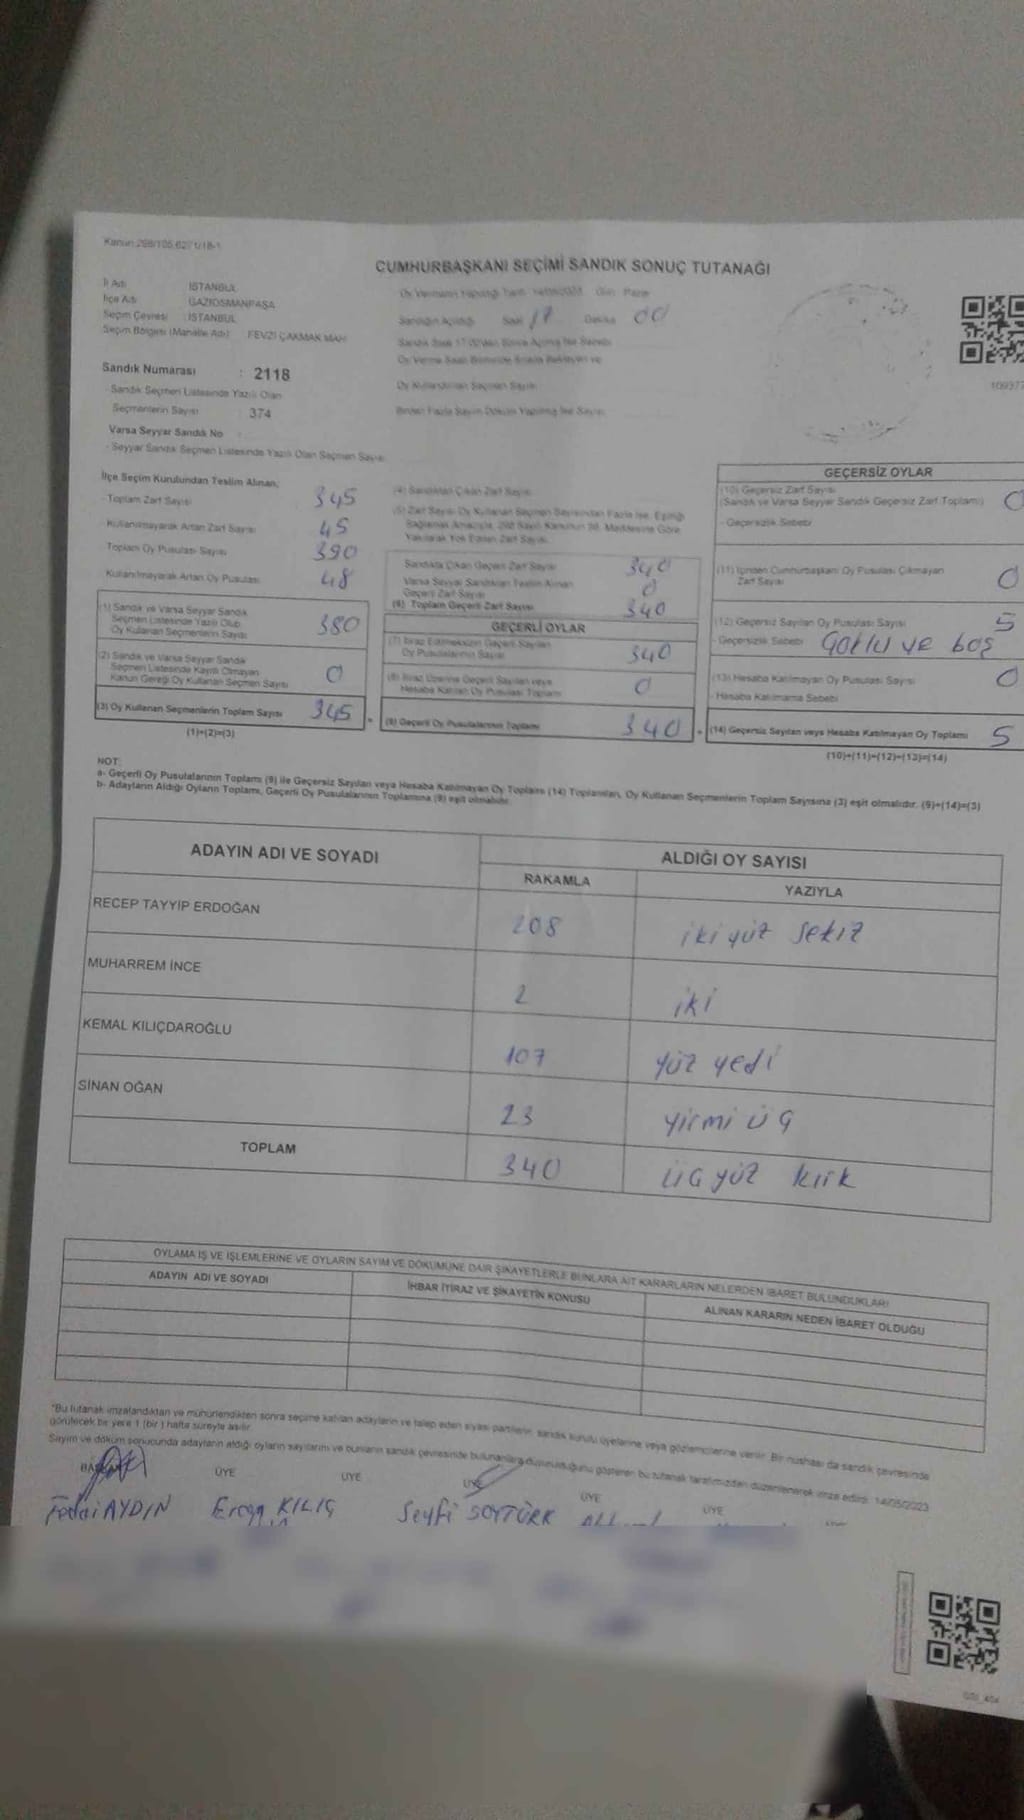 Kanun 298/105,6271/18-1
CUMHURBAŞKANI SEÇİMİ SANDIK SONUÇ TUTANAĞI
İl Adı : İSTANBUL
İlçe Adı : GAZİOSMANPAŞA
Seçim Çevresi : İSTANBUL
Seçim Bölgesi (Mahalle Adı) : FEVZİ ÇAKMAK MAH
Oy Vermenin Yapıldığı Tarih Gün Pazar
Sandığın Açıldığı Saat 17 Dakika 00
Oy Kullandırılan Seçmen Sayısı
109377
Sandık Numarası : 2118
- Sandık Seçmen Listesinde Yazılı Olan
Seçmenlerin Sayısı : 374
Varsa Seyyar Sandık No
- Seyyar Sandık Seçmen Listesinde Yazılı Olan Seçmen Sayısı
İlçe Seçim Kurulundan Teslim Alınan;
- Toplam Zarf Sayısı 345
- Kullanılmayarak Artan Zarf Sayısı 45
Toplam Oy Pusulası Sayısı 390
Kullanılmayarak Artan Oy Pusulası 48
(1) Sandık ve Varsa Seyyar Sandık
Seçmen Listesinde Yazılı Olup
Oy Kullanan Seçmenlerin Sayısı 380
(2) Sandık ve Varsa Seyyar Sandık
Seçmen Listesinde Kayıtlı Olmayan
Kanun Gereği Oy Kullanan Seçmen Sayısı 0
(3) Oy Kullanan Seçmenlerin Toplam Sayısı 345
(1)+(2)=(3)
(4) Sandıktan Çıkan Zarf Sayısı
(5) Zarf Sayısı Oy Kullanan Seçmen Sayısından Fazla İse, Eşitliği
Sağlamak Amacıyla, 298 Sayılı Kanunun 98. Maddesine Göre
Yakılarak Yok Edilen Zarf Sayısı
Sandıkta Çıkan Geçerli Zarf Sayısı 340
Varsa Seyyar Sandıktan Teslim Alınan
Geçerli Zarf Sayısı 0
(6) Toplam Geçerli Zarf Sayısı 340
GEÇERLİ OYLAR
(7) İtiraz Edilmeksizin Geçerli Sayılan
Oy Pusulalarının Sayısı 340
(8) İtiraz Üzerine Geçerli Sayılan veya
Hesaba Katılan Oy Pusulası Toplamı 0
(9) Geçerli Oy Pusulalarının Toplamı 340
GEÇERSİZ OYLAR
(10) Geçersiz Zarf Sayısı
(Sandık ve Varsa Seyyar Sandık Geçersiz Zarf Toplamı) 0
- Geçersizlik Sebebi
(11) İçinden Cumhurbaşkanı Oy Pusulası Çıkmayan
Zarf Sayısı 0
(12) Geçersiz Sayılan Oy Pusulası Sayısı 5
- Geçersizlik Sebebi ve boş
(13) Hesaba Katılmayan Oy Pusulası Sayısı 0
- Hesaba Katılmama Sebebi
(14) Geçersiz Sayılan veya Hesaba Katılmayan Oy Toplamı 5
(10)+(11)+(12)+(13)=(14)
NOT:
a- Geçerli Oy Pusulalarının Toplamı (9) ile Geçersiz Sayılan veya Hesaba Katılmayan Oy Toplamı (14) Toplamları, Oy Kullanan Seçmenlerin Toplam Sayısına (3) eşit olmalıdır. (9)+(14)=(3)
b- Adayların Aldığı Oyların Toplamı, Geçerli Oy Pusulalarının Toplamına (9) eşit olmalıdır.
ADAYIN ADI VE SOYADI ALDIĞI OY SAYISI
RAKAMLA YAZIYLA
RECEP TAYYIP ERDOĞAN 208 iki yüz sekiz
MUHARREM İNCE 2 iki
KEMAL KILIÇDAROĞLU 107 yüz yedi
SİNAN OĞAN 23 yirmi üç
TOPLAM 340 üç yüz kırk
OYLAMA İŞ VE İŞLEMLERİNE VE OYLARIN SAYIM VE DÖKÜMÜNE DAİR ŞİKAYETLERLE BUNLARA AİT KARARLARIN NELERDEN İBARET BULUNDUKLARI
ADAYIN ADI VE SOYADI İHBAR İTİRAZ VE ŞİKAYETİN KONUSU ALINAN KARARIN NEDEN İBARET OLDUĞU
*Bu tutanak imzalandıktan ve mühürlendikten sonra seçime katılan adayların ve talep eden siyasi partilerin sandık kurulu üyelerine veya gözlemcilerine verilir. Bir nüshası da sandık çevresinde
görülecek bir yere 1 (bir) hafta süreyle asılır.
Sayım ve döküm sonucunda adayların aldığı oyların sayılarını ve bunların sandık çevresinde bulunanlara duyurulduğunu gösteren bu tutanak tarafımızdan düzenlenerek imza edildi. 14/05/2023
BAŞKAN ÜYE ÜYE ÜYE ÜYE ÜYE
AYDIN KILIÇ Seyfi SOYTÜRK